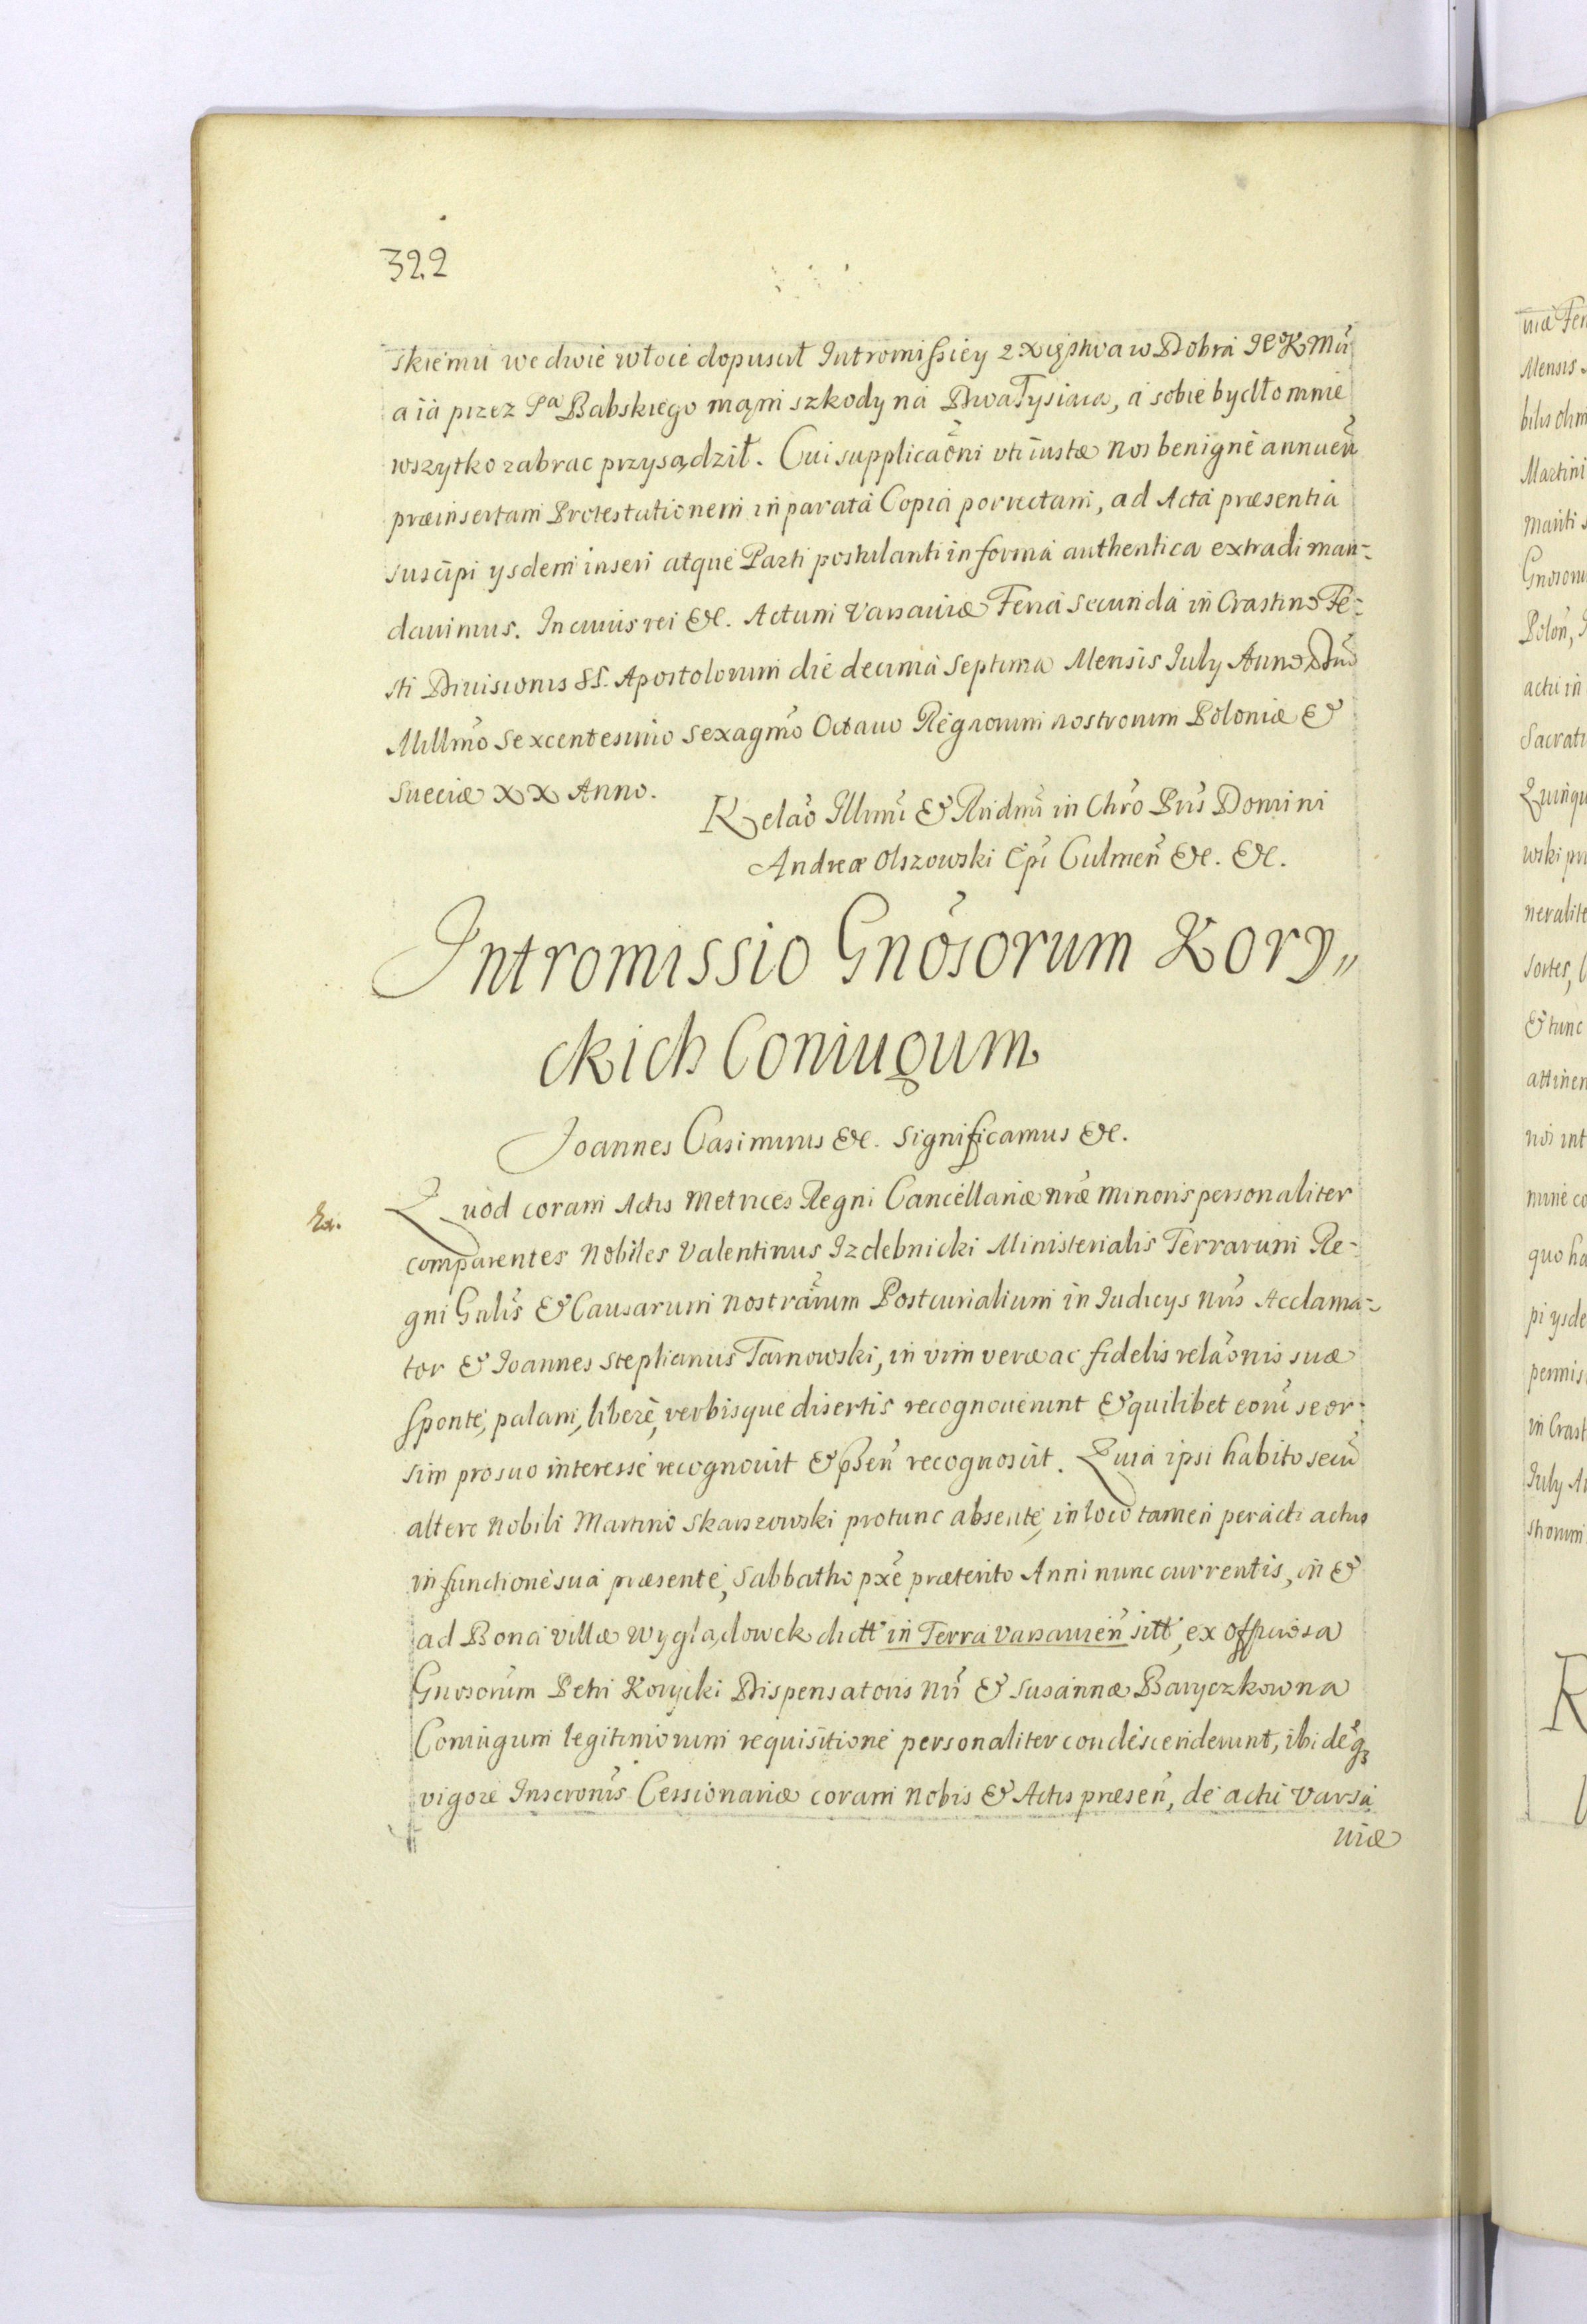 322
skiemu we dwie włoce dopuscił Intromissiey z Xięstwa w Dobra Je° K Mci
a ia przez Pa Babskiego mąm szkody na Dwa Tysiaca, a sobie bydło mnie
wszytko zabrac przysądził. Cui supplicaõni uti iustæ nos benigne annueñ
præinsertam Protestationem in parata Copia porrectam, ad Acta præsentia
suscipi ysdem inseri atque Parti postulanti in forma authentica extradi man=
dauimus. In cuius rei &c. Actum Varsauiæ Feria secunda in Crastino Fe=
sti Diuisionis SS. Apostolorum die decima Septima Mensis July Anno Dni
Millmo Sexcentesimo Sexagmo Octauo Regnorum nostrorum Poloniæ &
Sueciæ XX Anno.
Relao Illmi & Rndmi in Chro Pris Domini
Andreæ Olszowski Epi Culmeñ &c. &c.
Intromissio Gnosorum Kory„
ckich Coniugum
Joannes Casimirus &c. Significamus &c.
Quod coram Actis Metrices Regni Cancellariæ nræ Minoris personaliter
comparentes Nobiles Valentinus Izdebnicki Ministerialis Terrarum Re=
gni Gnlis & Causarum nostrarum Postcurialium in Iudicys nris Acclama=
tor & Joannes Stephanus Tarnowski, in vim veræ ac fidelis relaonis suæ
sponte, palam, libere, verbisque disertis recognouerunt & quilibet eoru seor=
sim pro suo interesse recognouit & pseñ recognoscit. Quia ipsi habito secu
altero Nobili Martino Skarszowski protunc absente, in loco tamen peracti actus
in functione sua præsente, Sabbatho pxe præterito Anni nunc currentis, in &
ad Bona villæ Wyglądowek dictt in Terra Varsauieñ sitt, ex officiosa
Gnosorum Petri Korycki Dispensatoris nri & Susannæ Baryczkowna
Coniugum legitimorum requisitione personaliter condescenderunt, ibideqz
vigore Inscronis Cessionariæ coram Nobis & Actis præseñ, de actu Varsa
uiæ